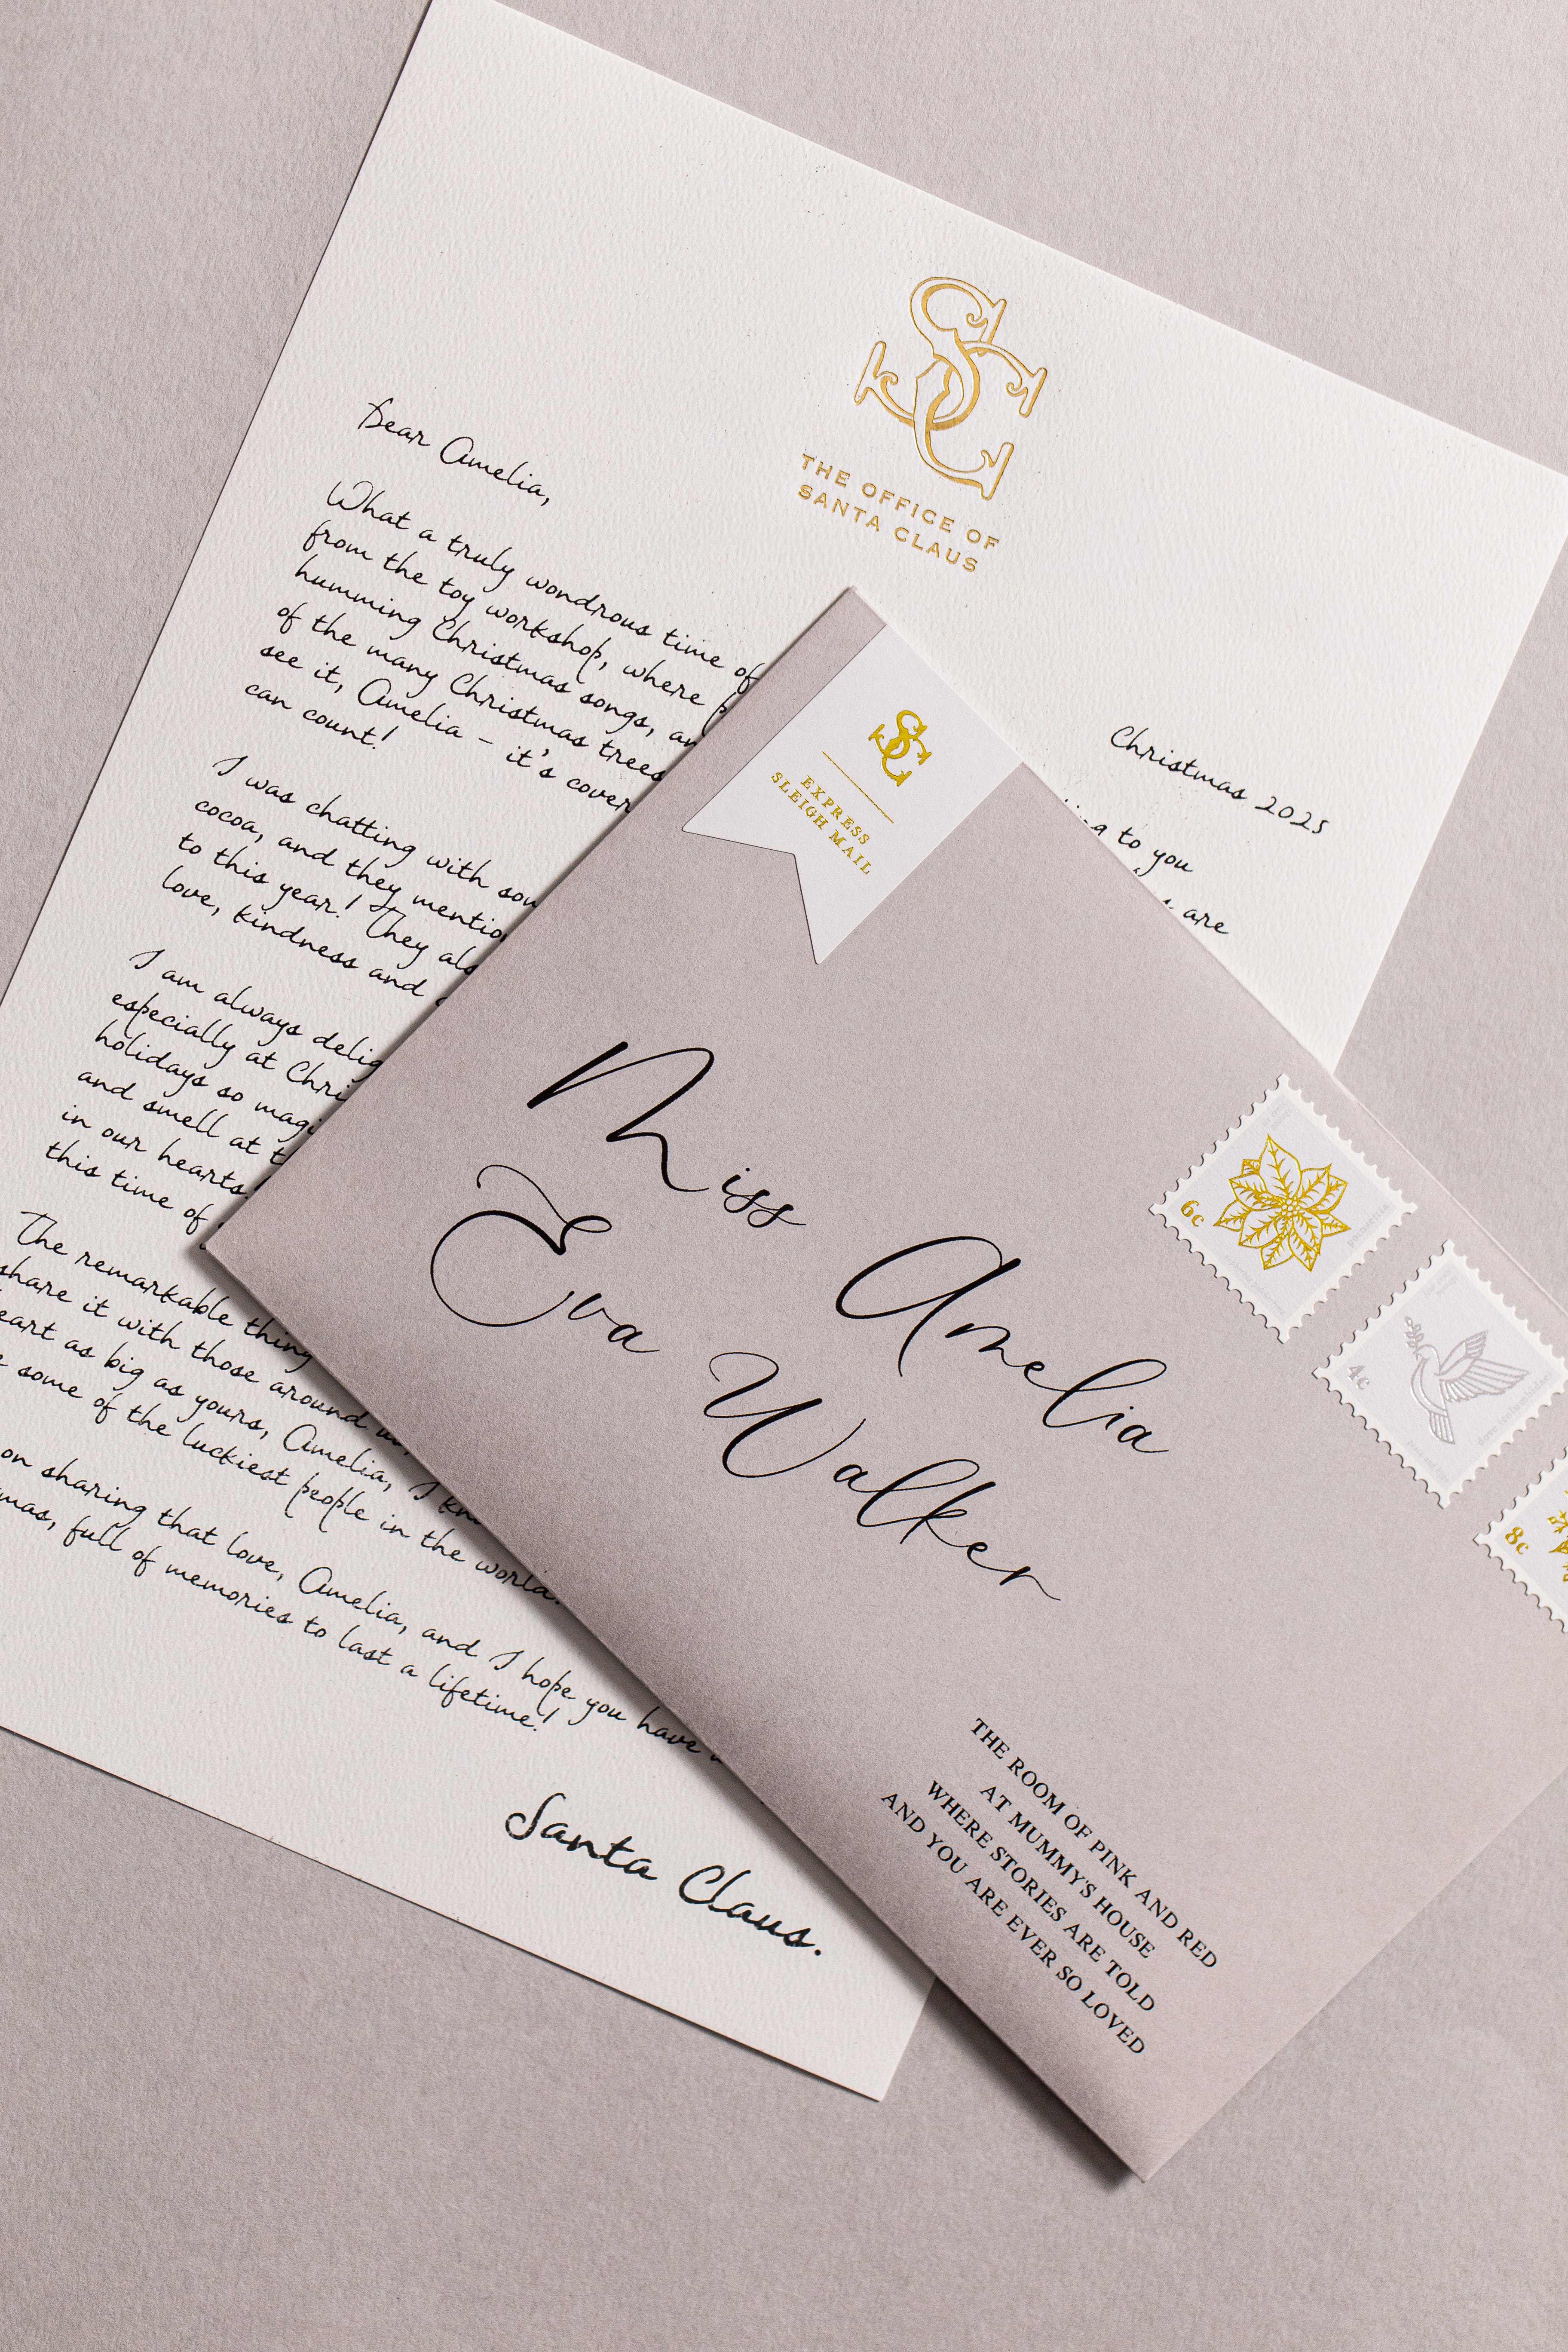 SC
THE OFFICE OF
SANTA CLAUS
Christmas 2025
Dear Amelia,
What a truly wondrous time of to you
from the toy workshop, where are
humming Christmas songs,
of the many Christmas trees
see it, Amelia – it's
can count!
I was chatting with
cocoa, and they
to this year! They
love, kindness and
I am always
especially at
holidays so
and smell at
in our hearts
this time of
The remarkable thing
share it with those around
as big as yours, Amelia, I
some of the luckiest people in the world.
on sharing that love, Amelia, and I hope you have
full of memories to last a lifetime!
Santa Claus.
SC
EXPRESS
SLEIGH MAIL
Miss Amelia
Eva Walker
6c
4c
8c
THE ROOM OF PINK AND RED
AT MUMMY'S HOUSE
WHERE STORIES ARE TOLD
AND YOU ARE EVER SO LOVED